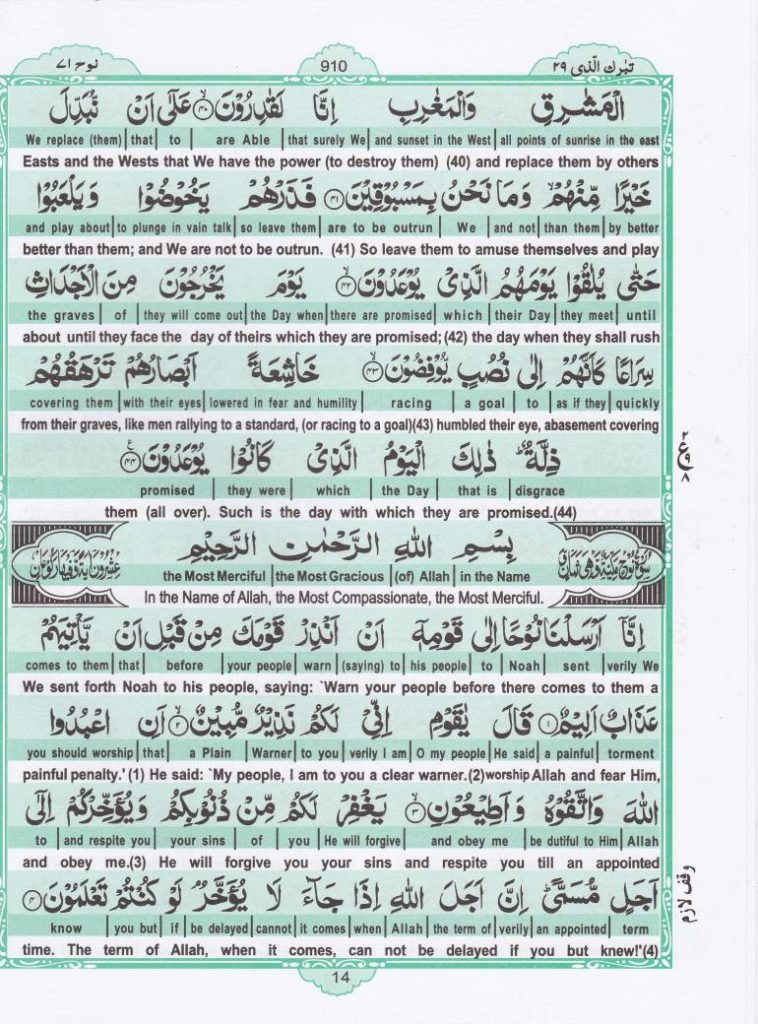 تبٰرك الّذى ٢٩ 910 نوح ٧١
الْمَشٰرِقِ وَالْمَغٰرِبِ اِنَّا لَقٰدِرُوْنَ ۴۰ عَلٰٓى اَنْ نُّبَدِّلَ
We replace (them) | that | to | are Able | that surely We | and sunset in the West | all points of sunrise in the east
Easts and the Wests that We have the power (to destroy them) (40) and replace them by others
خَيْرًا مِّنْهُمْ ۙ وَمَا نَحْنُ بِمَسْبُوْقِيْنَ ۴۱ فَذَرْهُمْ يَخُوْضُوْا وَيَلْعَبُوْا
and play about | to plunge in vain talk | so leave them | are to be outrun | We | and not | than them | by better
better than them; and We are not to be outrun. (41) So leave them to amuse themselves and play
حَتّٰى يُلٰقُوْا يَوْمَهُمُ الَّذِىْ يُوْعَدُوْنَ ۴۲ يَوْمَ يَخْرُجُوْنَ مِنَ الْاَجْدَاثِ
the graves | of | they will come out | the Day when | there are promised | which | their Day | they meet | until
about until they face the day of theirs which they are promised; (42) the day when they shall rush
سِرَاعًا كَاَنَّهُمْ اِلٰى نُصُبٍ يُّوْفِضُوْنَ ۴۳ خَاشِعَةً اَبْصَارُهُمْ تَرْهَقُهُمْ
covering them | with their eyes | lowered in fear and humility | racing | a goal | to | as if they | quickly
from their graves, like men rallying to a standard, (or racing to a goal)(43) humbled their eye, abasement covering
ذِلَّةٌ ؕ ذٰلِكَ الْيَوْمُ الَّذِىْ كَانُوْا يُوْعَدُوْنَ ۴۴
promised | they were | which | the Day | that is | disgrace
them (all over). Such is the day with which they are promised.(44)
٢ ع ٩ ٨
بِسْمِ اللهِ الرَّحْمٰنِ الرَّحِيْمِ
the Most Merciful | the Most Gracious | (of) Allah | in the Name
In the Name of Allah, the Most Compassionate, the Most Merciful.
اِنَّآ اَرْسَلْنَا نُوْحًا اِلٰى قَوْمِهٖٓ اَنْ اَنْذِرْ قَوْمَكَ مِنْ قَبْلِ اَنْ يَّاْتِيَهُمْ
comes to them | that | before | your people | warn | (saying) to | his people | to | Noah | sent | verily We
We sent forth Noah to his people, saying: `Warn your people before there comes to them a
عَذَابٌ اَلِيْمٌ ۱ قَالَ يٰقَوْمِ اِنِّىْ لَكُمْ نَذِيْرٌ مُّبِيْنٌ ۲ اَنِ اعْبُدُوا
you should worship | that | a Plain | Warner | to you | verily I am | O my people | He said | a painful | torment
painful penalty.' (1) He said: `My people, I am to you a clear warner.(2)worship Allah and fear Him,
اللهَ وَاتَّقُوْهُ وَاَطِيْعُوْنِ ۳ يَغْفِرْ لَكُمْ مِّنْ ذُنُوْبِكُمْ وَيُؤَخِّرْكُمْ اِلٰٓى
to | and respite you | your sins | of | you | He will forgive | and obey me | be dutiful to Him | Allah
and obey me.(3) He will forgive you your sins and respite you till an appointed
اَجَلٍ مُّسَمًّى ؕ اِنَّ اَجَلَ اللهِ اِذَا جَآءَ لَا يُؤَخَّرُ ۘ لَوْ كُنْتُمْ تَعْلَمُوْنَ ۴
know | you but | if | be delayed | cannot | it comes | when | Allah | the term of | verily | an appointed | term
time. The term of Allah, when it comes, can not be delayed if you but knew!'(4)
وقف لازم
14